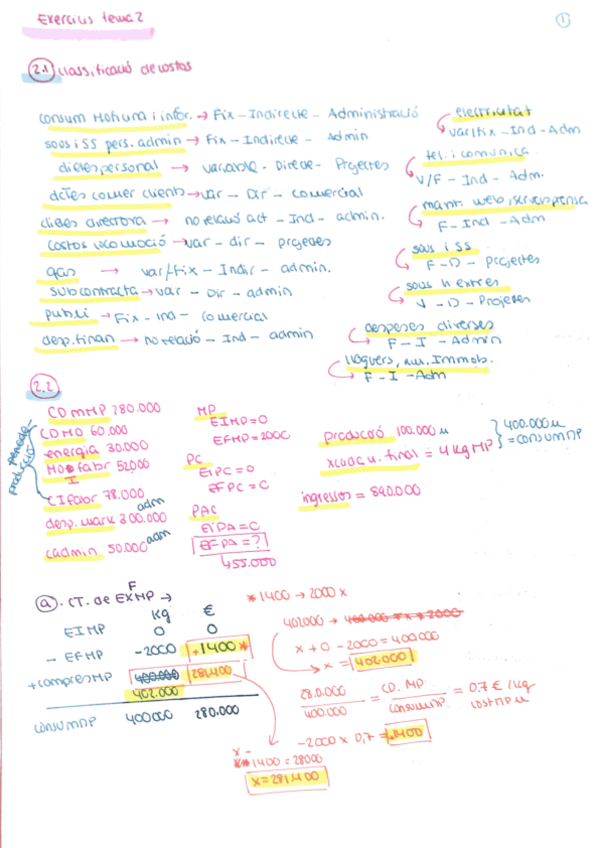 Exercicis tema 2
1
2.1 classificació de costos
consum mat una i infor. → Fix - Indirecte - Administració
sous i SS pers. admin → Fix - Indirecte - Admin
dietes personal → variable - Directe - Projectes
dctes comer clients → var - Dir - comercial
dietes directora → no relació act - Ind - admin.
costos locomoció → var - dir - projectes
gas → var/fix - Indir - admin.
subcontracta → var - Dir - admin
publi → Fix - ind - comercial
desp. finan → no relació - Ind - admin
electricitat
var/fix - Ind - Adm
tel. i comunica
V/F - Ind - Adm.
mant. web i
F - Ind - Adm
sous i SS
F - D - Projectes
sous h extres
V - D - Projectes
despeses diverses
F - I - Admin
lloguers, Immob.
F - I - Adm
2.2
CD MP 280.000
CDMO 60.000
energia 30.000
MO fabr 52000
I
CI fabr 78.000
desp. mark 300.000 adm
cadmin 50.000 adm
producció
MP
EIMP = 0
EFMP = 2000
PC
EIPC = 0
EFPC = 0
PAC
EIPA = 0
EFPA = ?
455.000
producció 100.000 u
xcada u. final = 4 kg MP
400.000 u = consum MP
ingressos = 840.000
a. CT. de F MP →
Kg €
EIMP 0 0
- EFMP -2000 +1400 *
+ compres MP 400.000 281.400
402.000
consum MP 400000 280.000
* 1400 → 2000 x
402000 → 400.000 * x * 2000
x + 0 - 2000 = 400000
→ x = 402.000
280.000 / 400.000 = CD. MP. / consum MP. = 0.7 € / kg cost MP u
-2000 x 0,7 = -1400
x - 1400 = 28000
x = 281.400